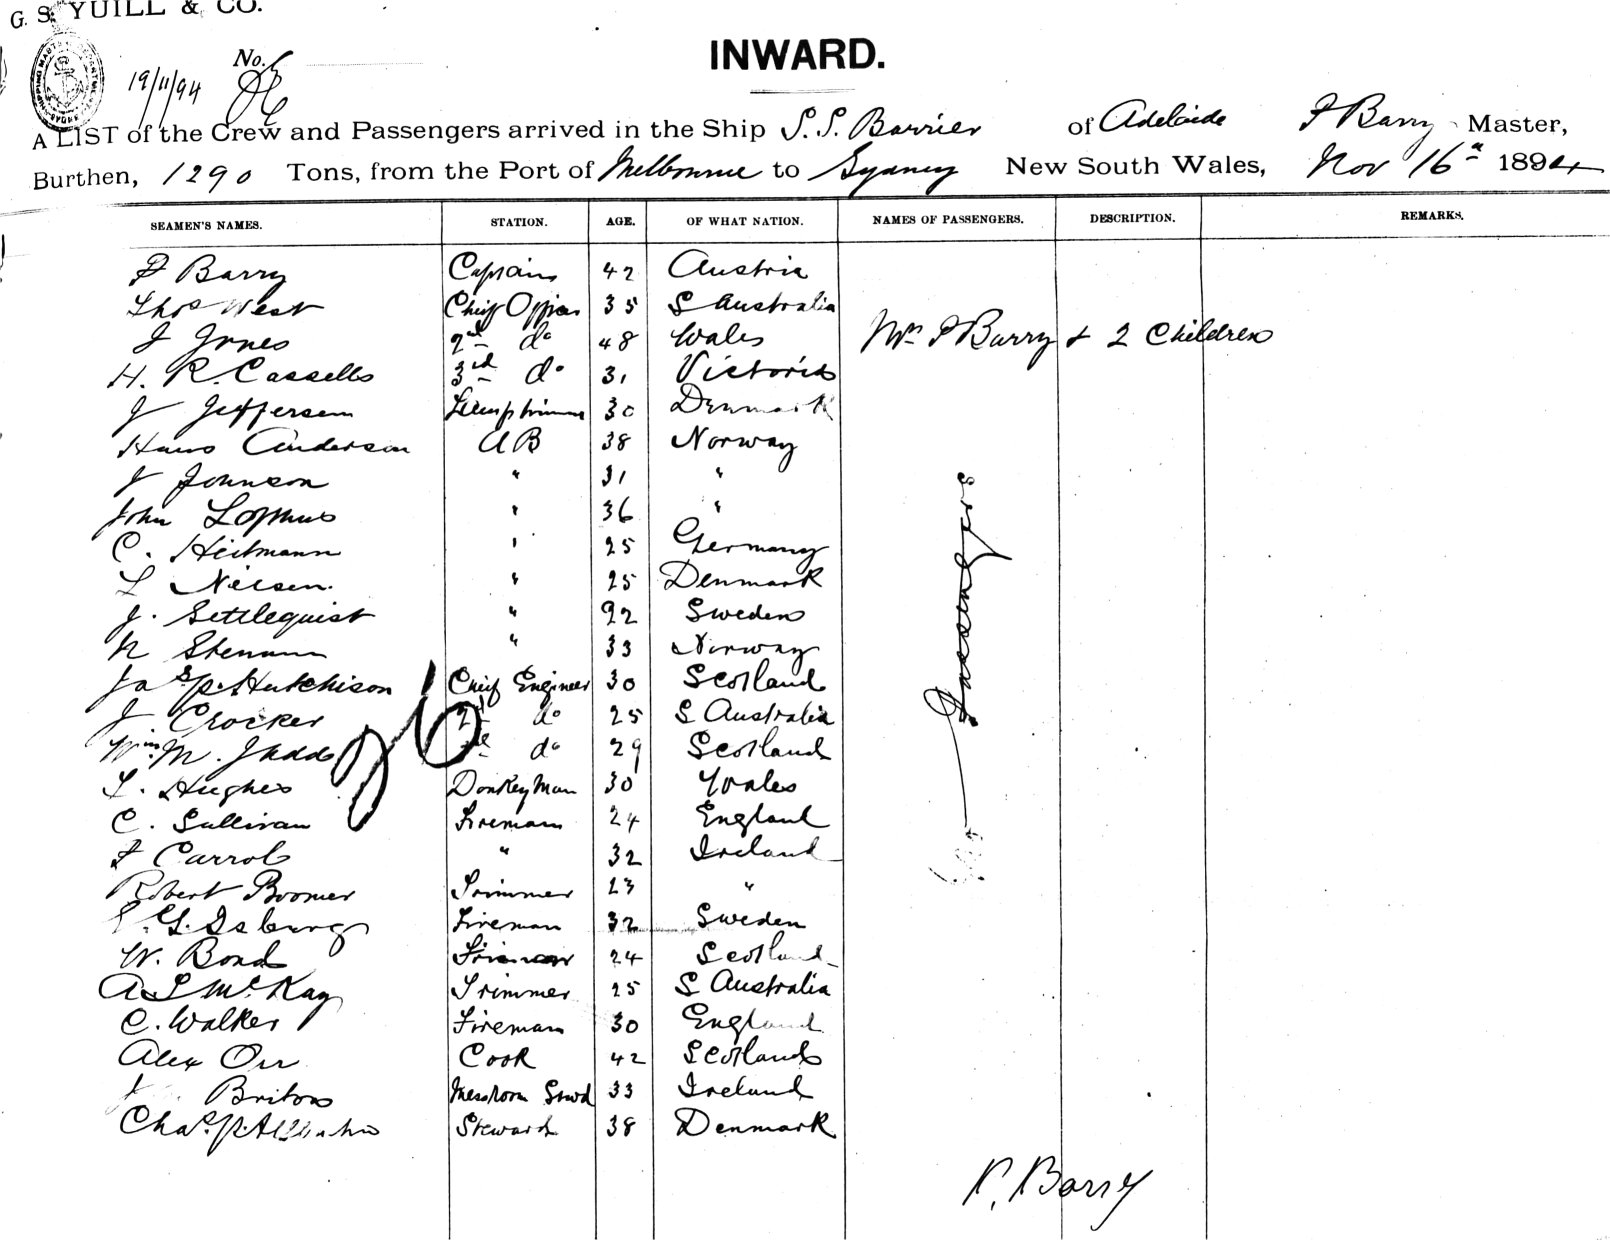 G. S. YUILL & CO.
INWARD.
No.
19/11/94
A LIST of the Crew and Passengers arrived in the Ship S.S. Barrier of Adelaide F Barry Master,
Burthen, 1290 Tons, from the Port of Melbourne to Sydney New South Wales, Nov 16th 1894
SEAMEN'S NAMES. STATION. AGE. OF WHAT NATION. NAMES OF PASSENGERS. DESCRIPTION. REMARKS.
F Barry Captain 42 Austria
Thos West Chief Officer 35 S Australia
J Jones 2nd do 48 Wales Mrs F Barry + 2 Children
H. R. Cassells 3rd do 31 Victoria
J Jeffersen Lamptrimmer 30 Denmark
Hans Anderson AB 38 Norway
J Johnson " 31 "
John Lopmus " 36 "
C. Heitmann " 25 Germany
L Nielsen. " 25 Denmark
J. Settlequist " 22 Sweden
N Stenman " 33 Norway
Jas P. Hutchison Chief Engineer 30 Scotland
J Crocker 2nd do 25 S Australia
Wm M. Judd do 29 Scotland
L. Hughes Donkeyman 30 Wales
C. Sullivan Fireman 24 England
F Carrol " 32 Ireland
Robert Boomer Trimmer 23 "
G. Isburg Fireman 32 Sweden
W. Bond Fireman 24 Scotland
A S McKay Trimmer 25 S Australia
C. Walker Fireman 30 England
Alex Orr Cook 42 Scotland
Briton Messroom Stwd 33 Ireland
Chas. P. Steward 38 Denmark
Passengers
P. Barry
26